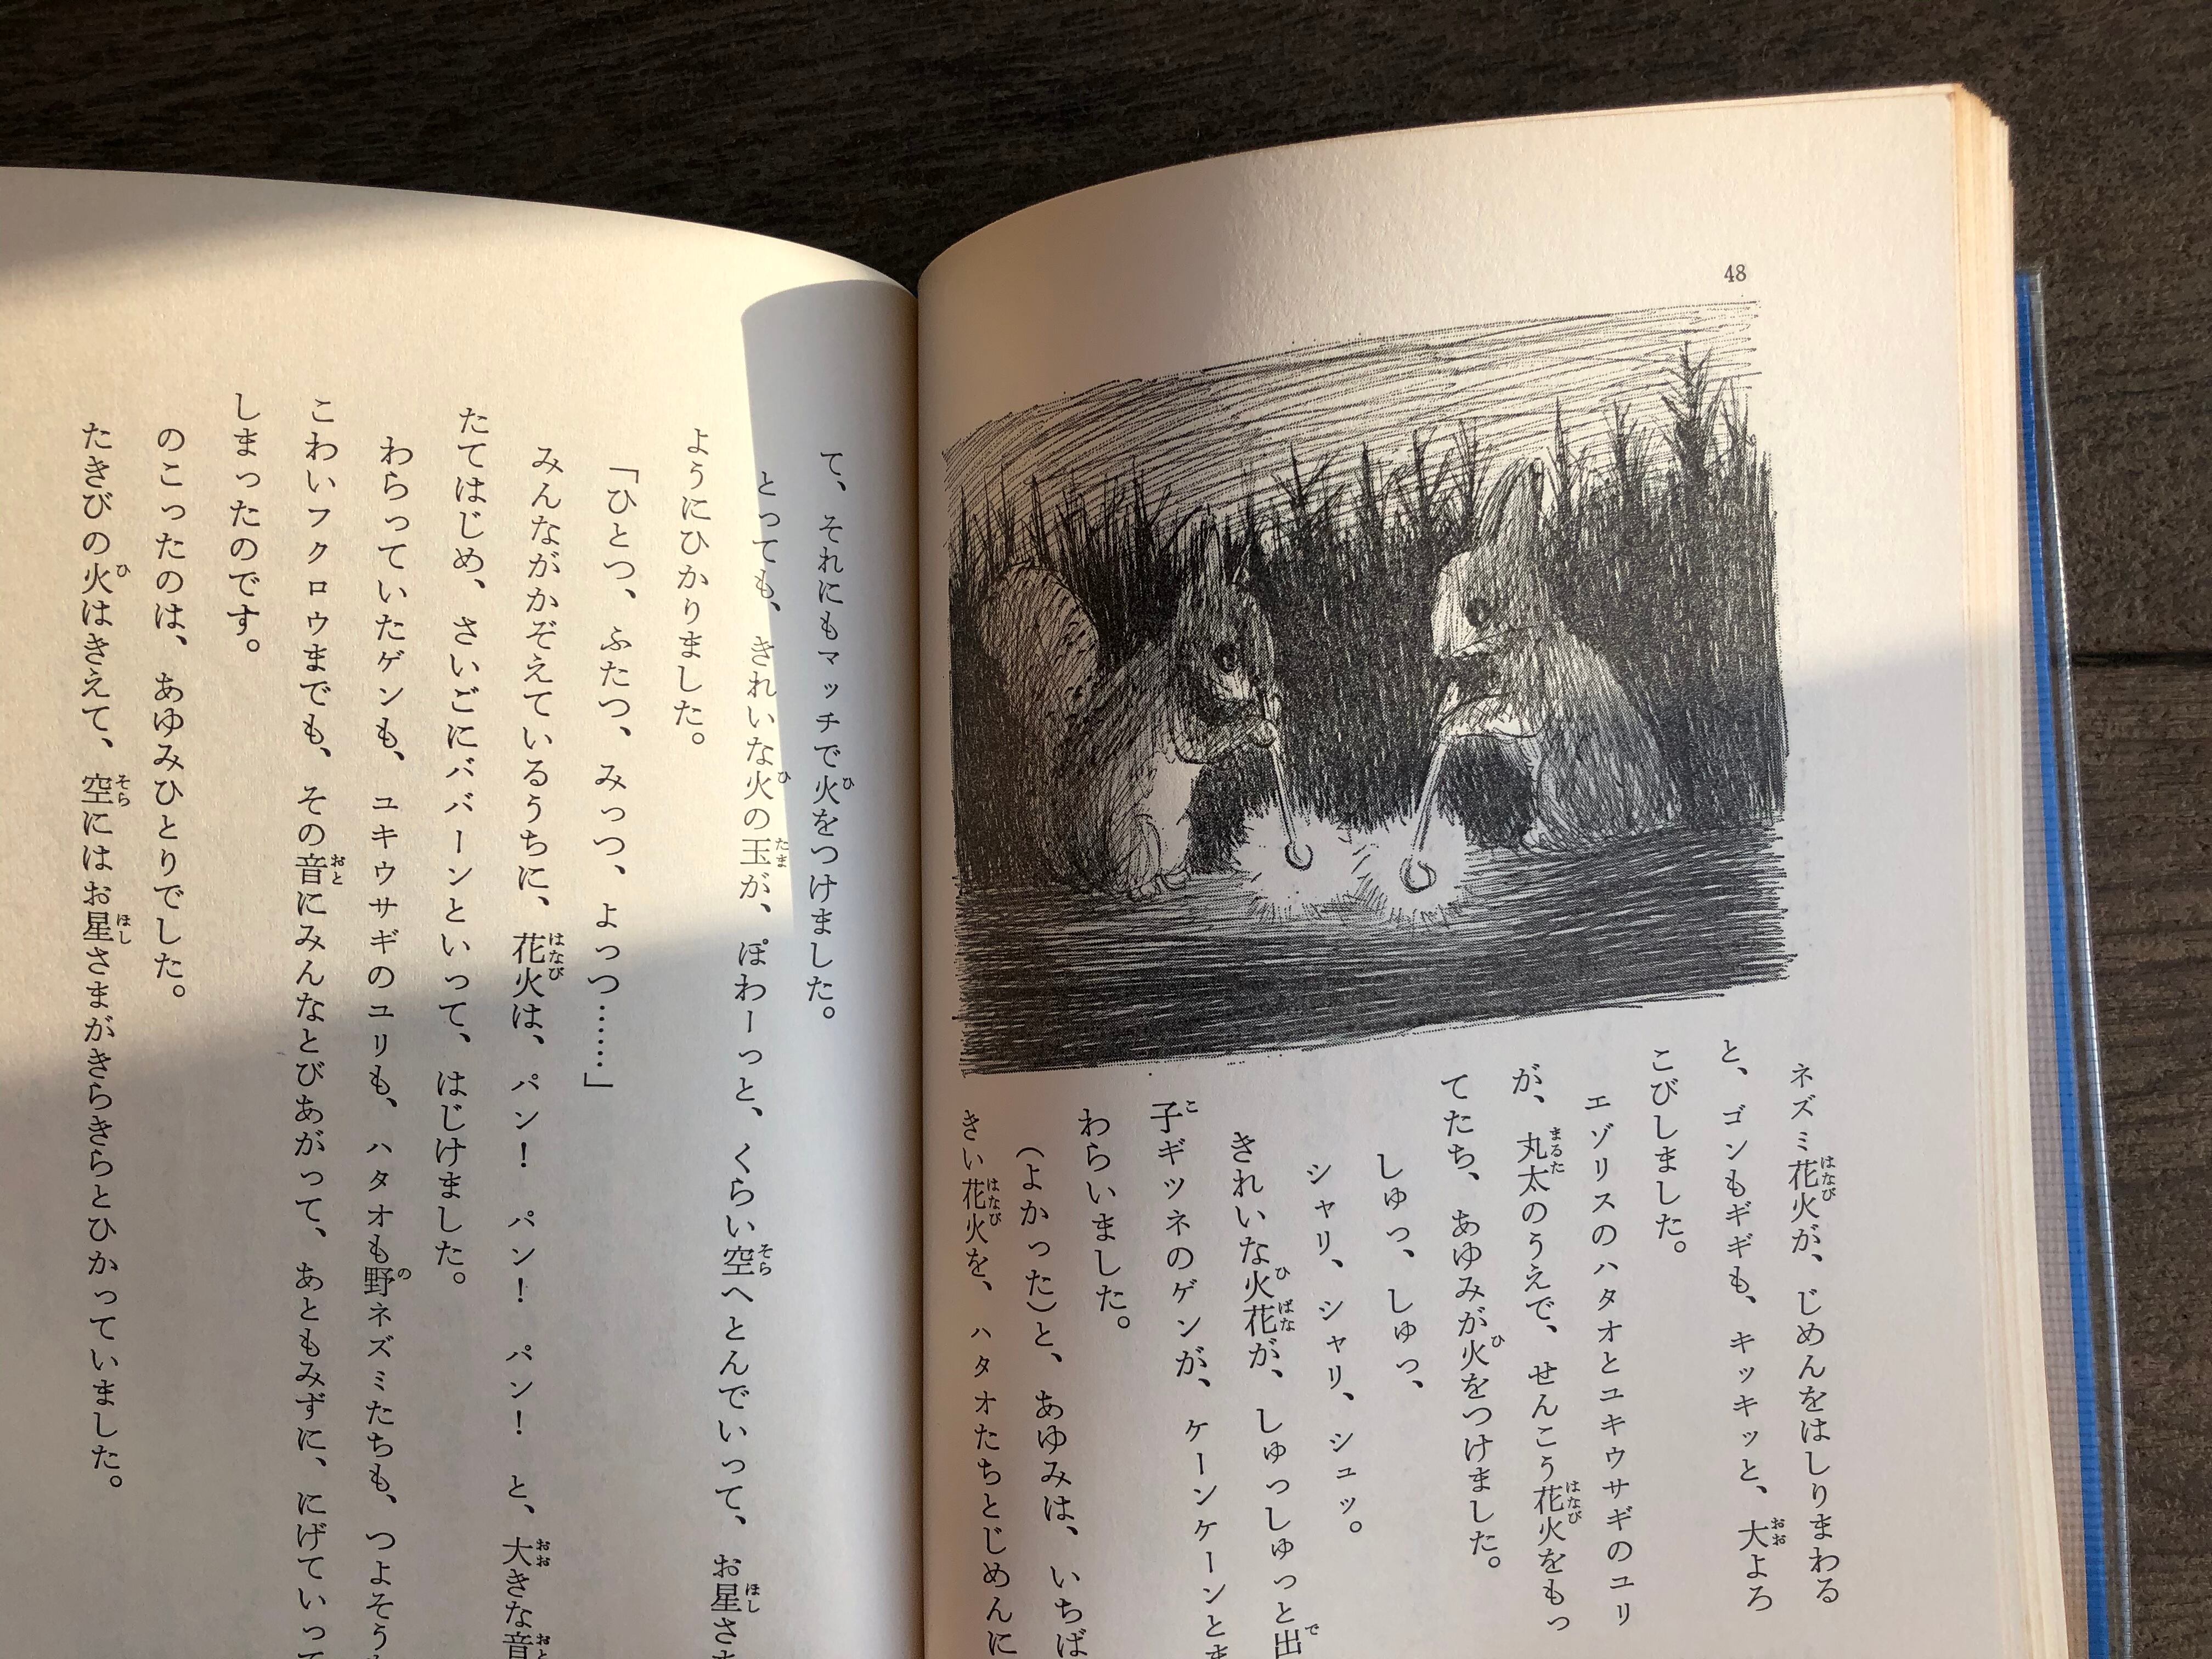 48
ネズミ花火が、じめんをはしりまわる
と、ゴンもギギも、キッキッと、大よろ
こびしました。
エゾリスのハタオとユキウサギのユリ
が、丸太のうえで、せんこう花火をもっ
てたち、あゆみが火をつけました。
しゅっ、しゅっ、
シャリ、シャリ、シュッ。
きれいな火花が、しゅっしゅっと出
子ギツネのゲンが、ケーンケーンと
わらいました。
(よかった)と、あゆみは、いちば
きい花火を、ハタオたちとじめんに
て、それにもマッチで火をつけました。
とっても、きれいな火の玉が、ぽわーっと、くらい空へとんでいって、お星さ
ようにひかりました。
「ひとつ、ふたつ、みっつ、よっつ……」
みんながかぞえているうちに、花火は、パン！パン！パン！と、大きな音
たてはじめ、さいごにババーンといって、はじけました。
わらっていたゲンも、ユキウサギのユリも、ハタオも野ネズミたちも、つよそう
こわいフクロウまでも、その音にみんなとびあがって、あともみずに、にげていって
しまったのです。
のこったのは、あゆみひとりでした。
たきびの火はきえて、空にはお星さまがきらきらとひかっていました。